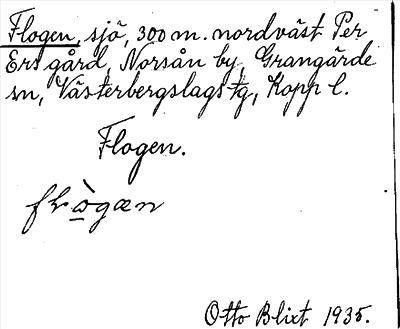 Flogen, sjö, 300 m. nordväst Per
Ers gård, Norsån by, Grangärde
sn, Västerbergslags tg, Kopp l.
Flogen.
Otto Blixt 1935.